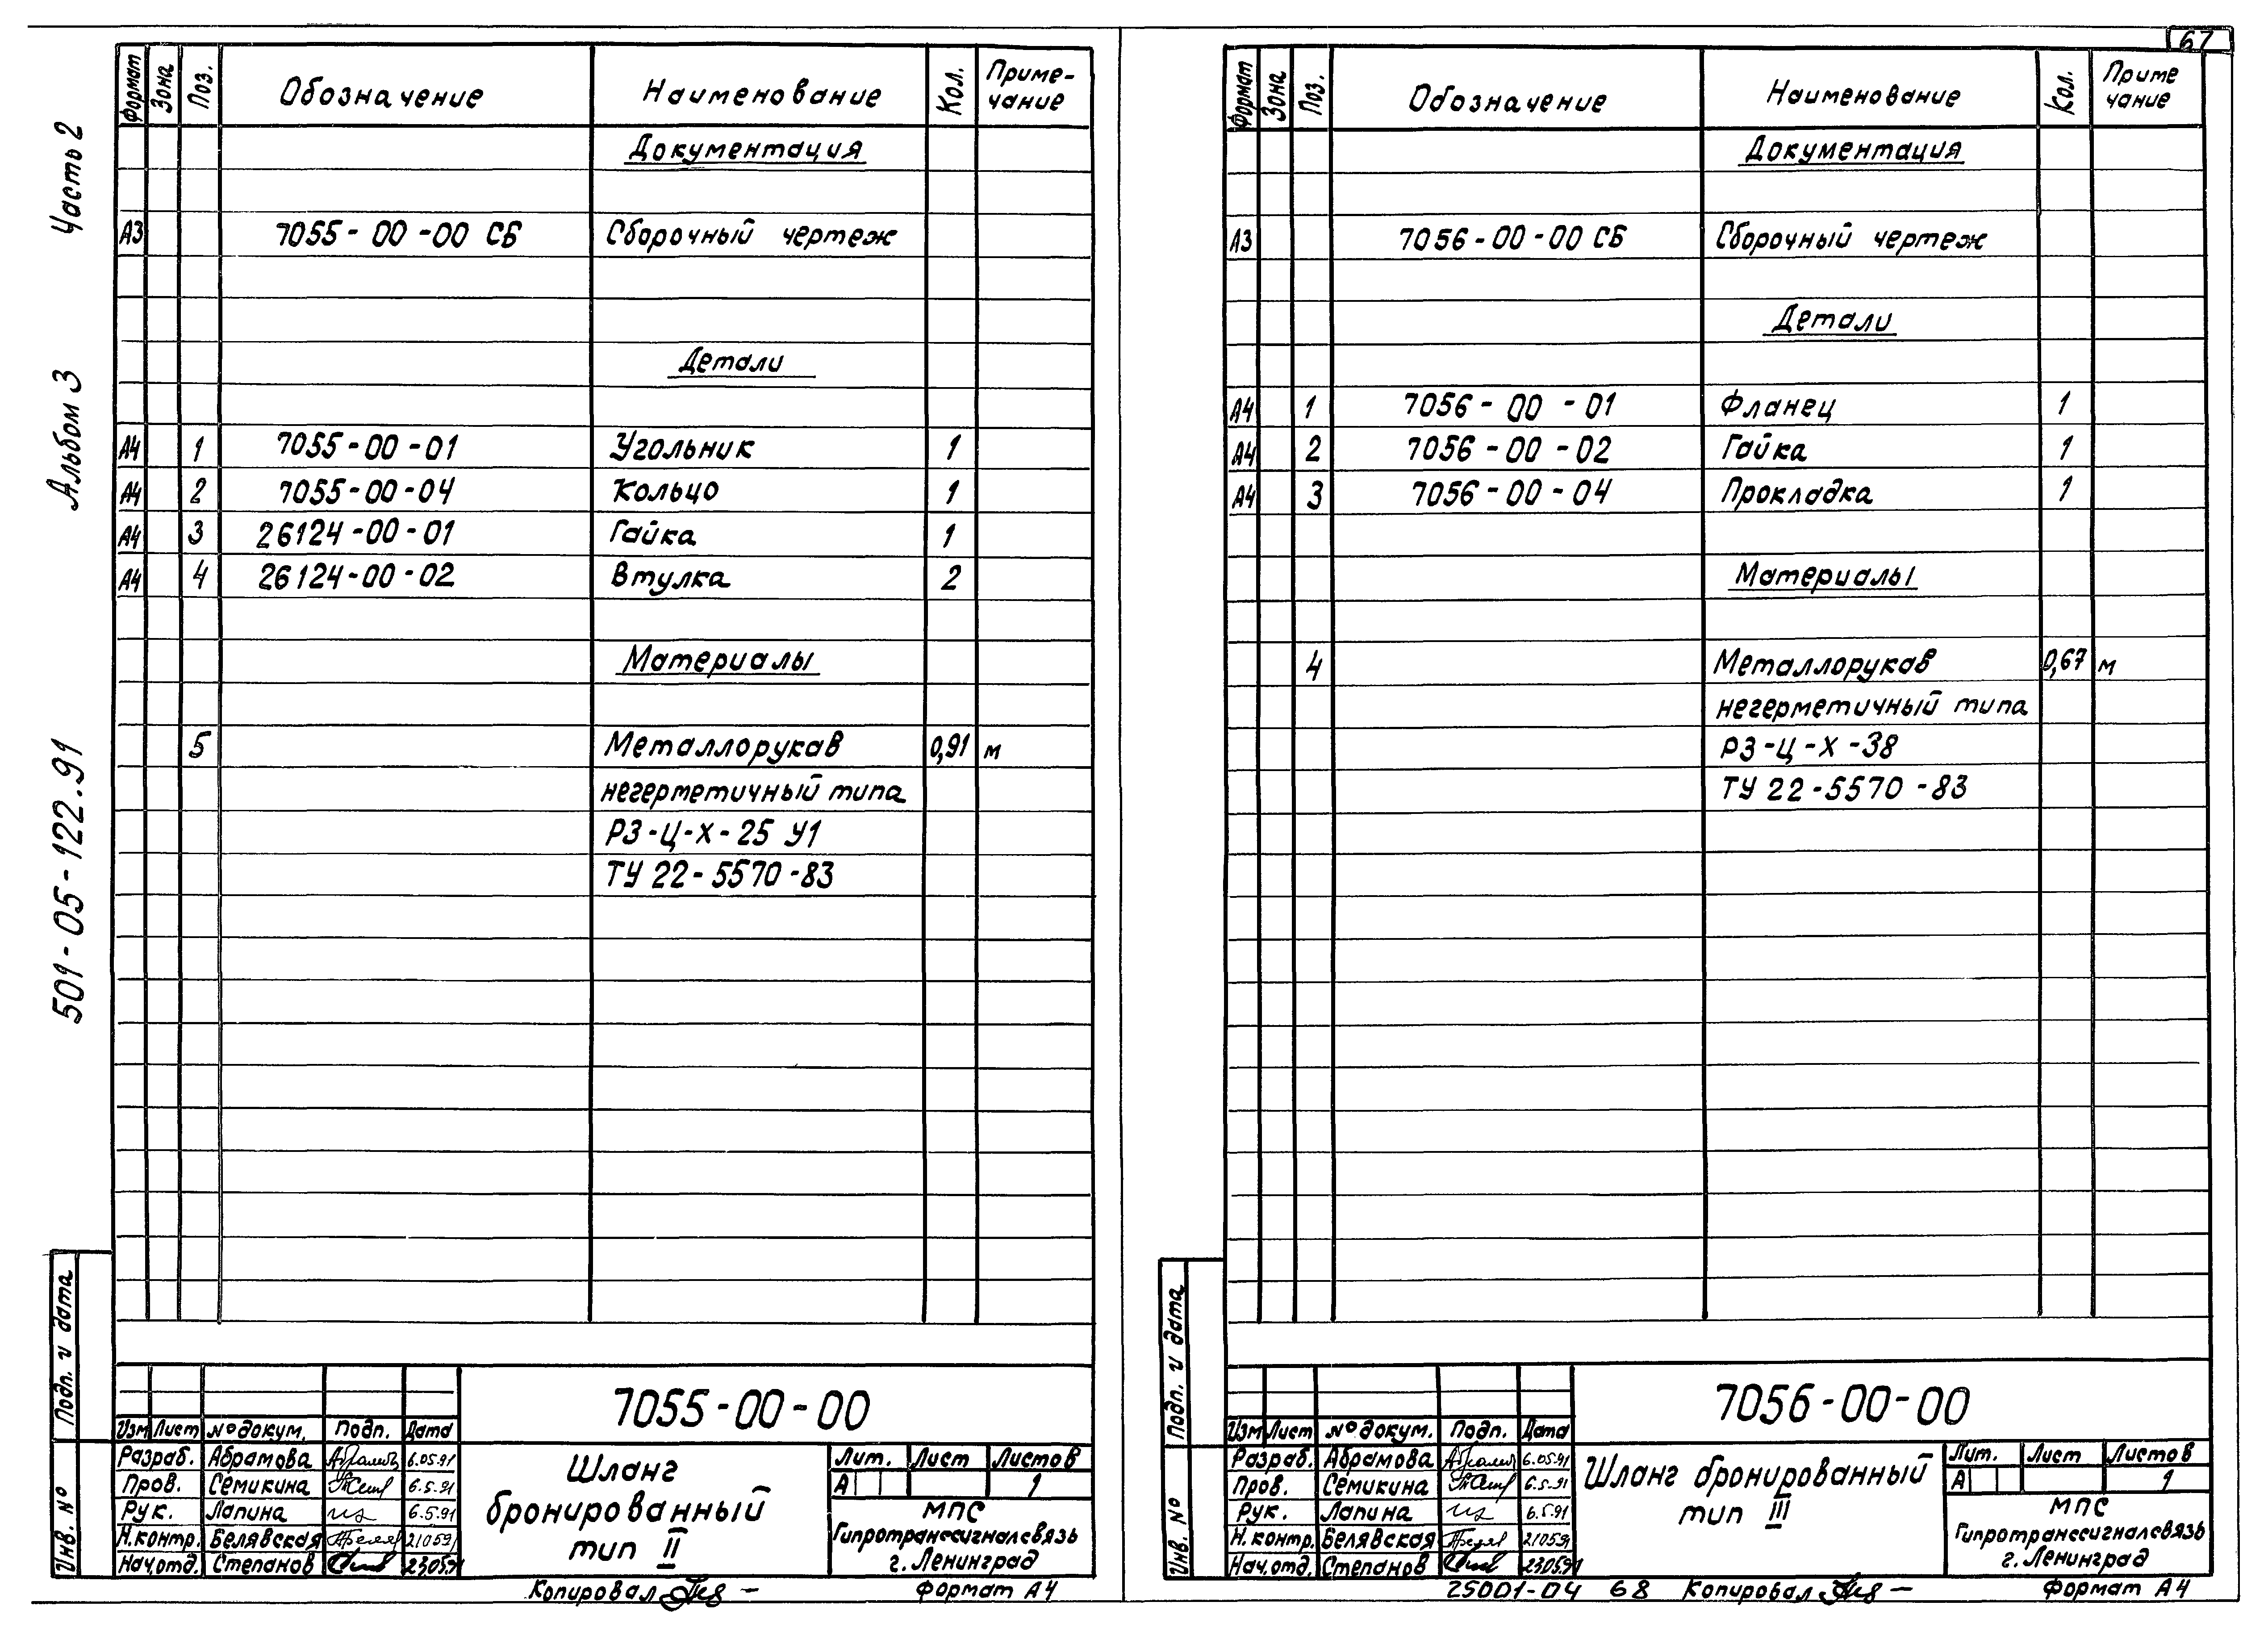 67
Часть 2
Альбом 3
501-05-122.91
Формат Зона Поз. Обозначение Наименование Кол. Приме-
чание
Документация
А3 7055-00-00 СБ Сборочный чертеж
Детали
А4 1 7055-00-01 Угольник 1
А4 2 7055-00-04 Кольцо 1
А4 3 26124-00-01 Гайка 1
А4 4 26124-00-02 Втулка 2
Материалы
5 Металлорукав 0,91 м
негерметичный типа
РЗ-Ц-Х-25 У1
ТУ 22-5570-83
Подп. и дата
Инв. №
7055-00-00
Изм Лист № докум. Подп. Дата
Разраб. Абрамова 6.05.91
Пров. Семикина 6.5.91
Рук. Лапина 6.5.91
Н.контр. Белявская 210591
Нач.отд. Степанов 230591
Шланг
бронированный
тип II
Лит. Лист Листов
А 1
МПС
Гипротранссигналсвязь
г. Ленинград
Копировал
Формат А4
Формат Зона Поз. Обозначение Наименование Кол. Приме
чание
Документация
А3 7056-00-00 СБ Сборочный чертеж
Детали
А4 1 7056-00-01 Фланец 1
А4 2 7056-00-02 Гайка 1
А4 3 7056-00-04 Прокладка 1
Материалы
4 Металлорукав 0,67 м
негерметичный типа
РЗ-Ц-Х-38
ТУ 22-5570-83
Подп. и дата
Инв. №
7056-00-00
Изм Лист № докум. Подп. Дата
Разраб. Абрамова 6.05.91
Пров. Семикина 6.5.91
Рук. Лапина 6.5.91
Н.контр. Белявская 210591
Нач.отд. Степанов 230591
Шланг бронированный
тип III
Лит. Лист Листов
А 1
МПС
Гипротранссигналсвязь
г. Ленинград
25001-04 68 Копировал
Формат А4